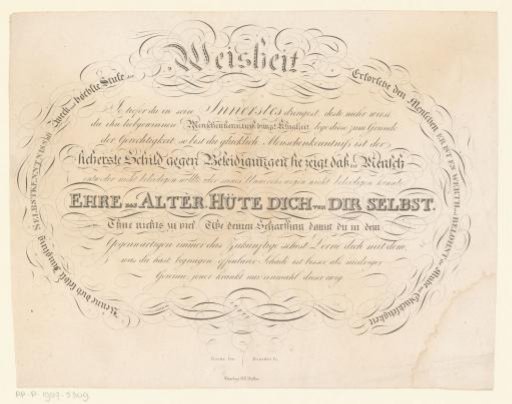 Weisheit
Erforsche den Menschen ER IST ES WERTH und BELOHNT mit Ruhe und Glückseligkeit
Kenne dich selbst Jüngling SELBSTKENNTNIS ist Zweck und höchste Stufe der
Je tiefer du in sein Innerstes dringest, desto mehr wirst
du ihn liebgewinnen! Menschenkenntniss bringt Klugheit lege diese zum Grunde
der Gerechtigkeit so bist du glücklich Menschenkenntniß ist der
sicherste Schild gegen Beleidigungen sie zeigt daß der Mensch
entweder nicht beleidigen wollte oder seines nicht beleidigen konnte
EHRE das ALTER HÜTE DICH vor DIR SELBST.
Thue nichts zu viel Übe deinen Scharfsinn damit du in dem
Gegenwärtigen immer das Zukünftige siehst Lerne dich mit dem
was du hast begnügen offenbarer Schade ist besser als niedriger
Gewinn jener kränkt nur einmahl dieser ewig
PP-P-1909-5309